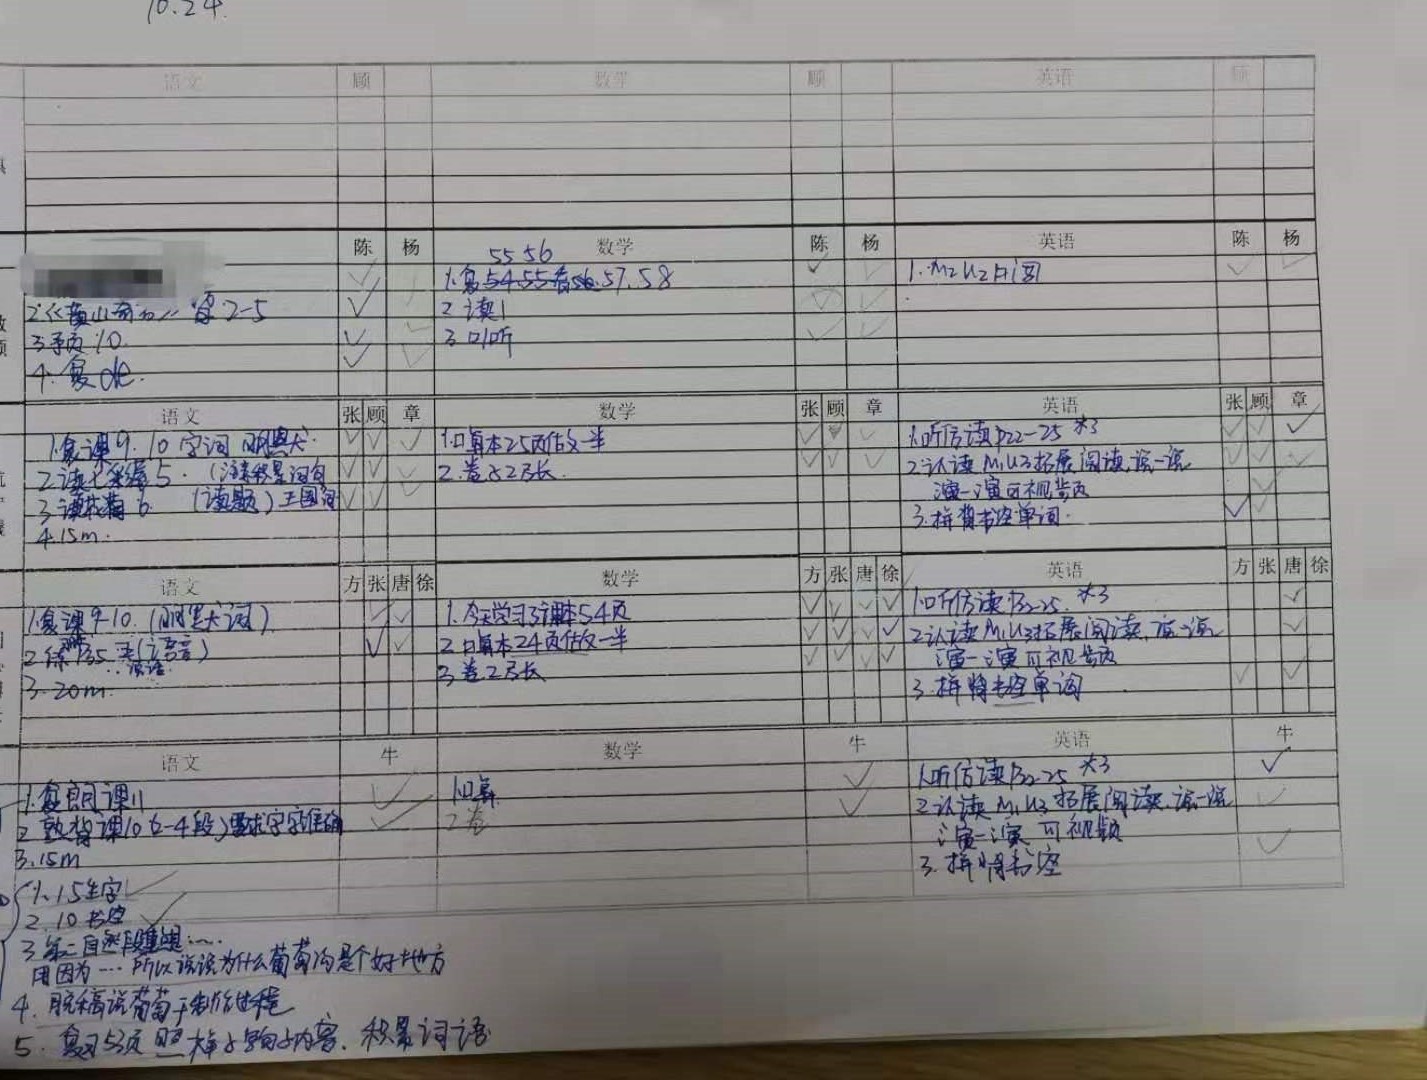 10.24.
语文 顾 数学 顾 英语 顾
陈 杨 数学 陈 杨 英语 陈 杨
55 56
1.复54.55看56.57.58
1.M2U2片图
2.《黄山奇石》背2-5
2 读1
3 预习10.
3 口听
4.复de.
语文 张 顾 章 数学 张 顾 章 英语 张 顾 章
1.复课9.10字词 明黑大.
1.口算本25页估做一半
1.听仿读P22-25 *3
2.读七彩 5.(注 积累词句
2.卷 2 长.
2.认读M1U3拓展阅读.说一说
演一演可视频
3. 6 (读题)
3.拼背书空单词.
4.15m.
语文 方 张 唐 徐 数学 方 张 唐 徐 英语 方 张 唐 徐
1.复课9-10.(明黑大词)
1.今天学习了课本54页
1.听仿读P22-25. *3
2 练P35 (语音)
2.口算本24页估做一半
2.认读M1U3拓展阅读.说一说
演一演可视频
3.20m.
3.卷2 长
3.拼背书空单词
语文 牛 数学 牛 英语 牛
1.复 课11
1.口算.
1.听仿读P22-25 *3
2 熟背课10(2-4段)要求字字准确
2 卷
2.认读M1U3拓展阅读.说一说
演一演 可视频
3.15m
3.拼背书空
1.15生字
2.10书空
3.第二自然段
用因为…所以说说为什么葡萄沟是个好地方
4.脱稿说葡萄干制作过程
5.复习53页 照样子 内容.积累词语